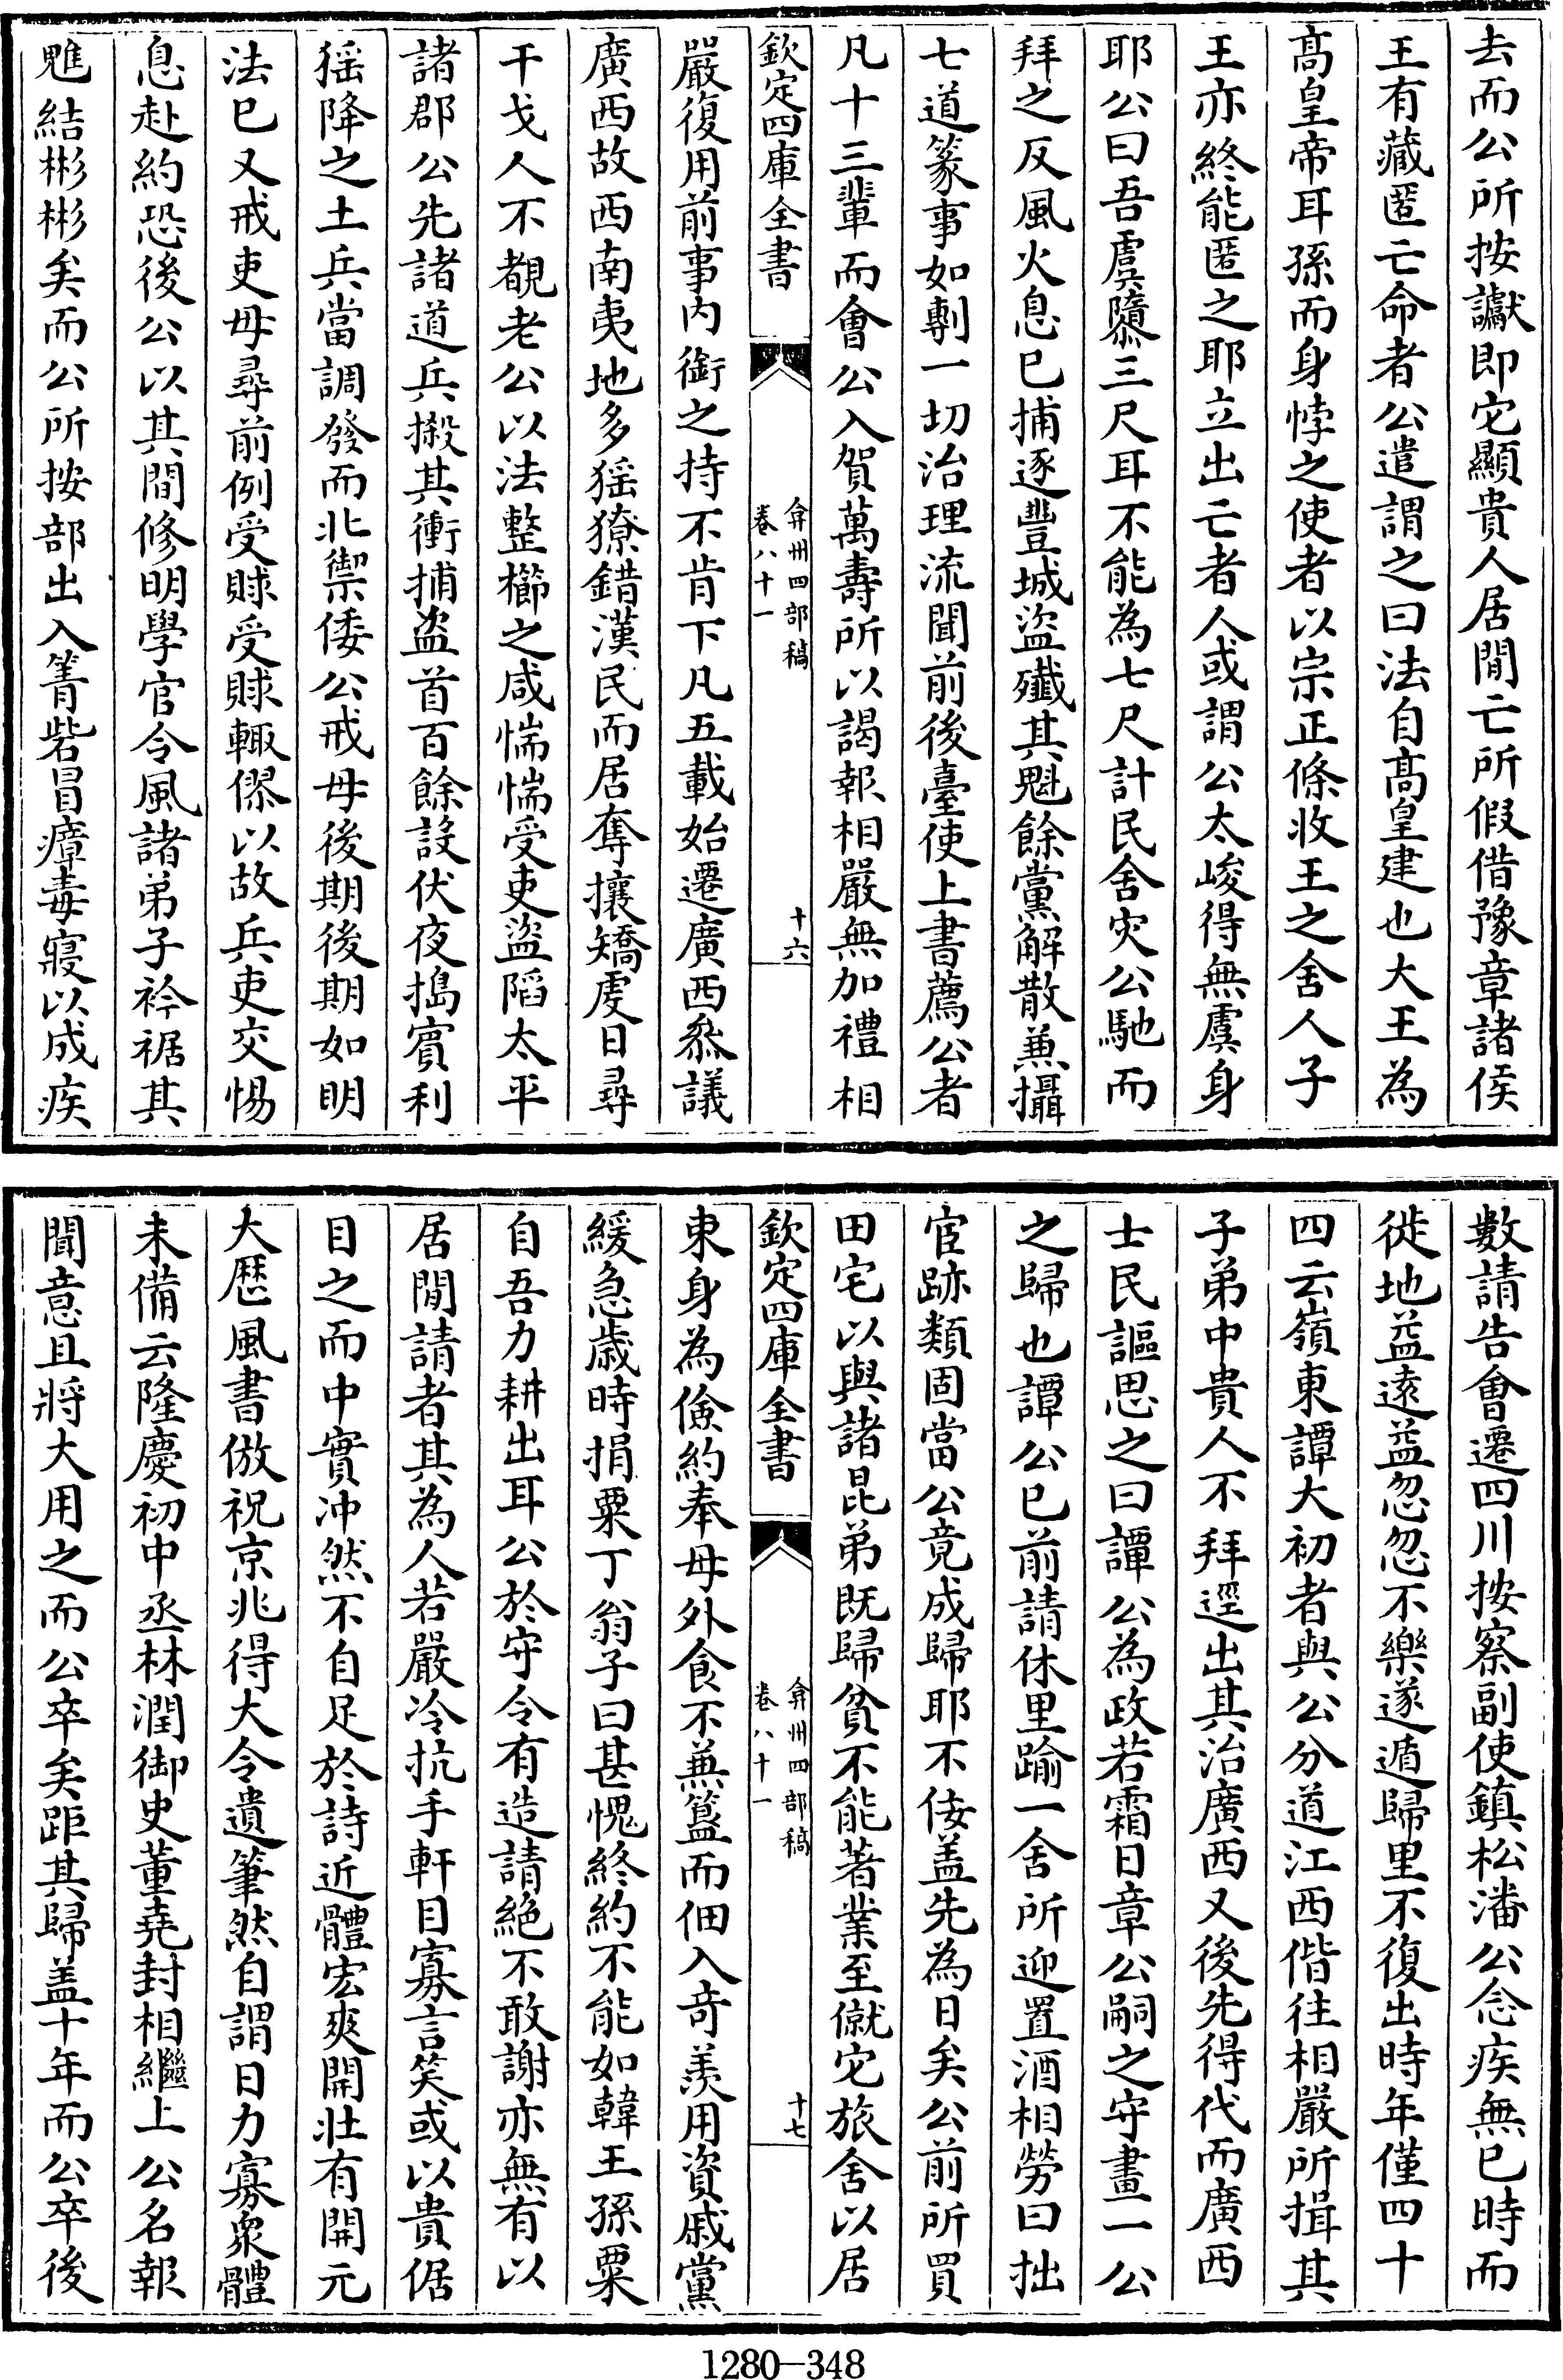 去而公所按讞即它顯貴人居間亡所假借豫章諸侯
王有藏匿亡命者公遣謂之曰法自髙皇建也大王為
髙皇帝耳孫而身悖之使者以宗正條收王之舍人子
王亦終能匿之耶立出亡者人或謂公太峻得無虞身
耶公曰吾虞隳三尺耳不能為七尺計民舍灾公馳而
拜之反風火息已捕逐豐城盜殲其魁餘黨解散兼攝
七道篆事如剸一切治理流聞前後臺使上書薦公者
凡十三輩而會公入賀萬壽所以謁報相嚴無加禮相
欽定四庫全書
弇州四部稿
卷八十一
十六
嚴復用前事内銜之持不肯下凡五載始遷廣西叅議
廣西故西南夷地多猺獠錯漢民而居奪攘矯䖍日尋
干戈人不覩老公以法整櫛之咸惴惴受吏盜䧟太平
諸郡公先諸道兵搬其衝捕盜首百餘設伏夜搗賓利
猺降之土兵當調發而北禦倭公戒毋後期後期如明
法已又戒吏毋尋前例受賕受賕輙僇以故兵吏交惕
息赴約恐後公以其間修明學官令風諸弟子衿裾其
魋結彬彬矣而公所按部出入箐砦冒瘴毒寖以成疾
數請告會遷四川按察副使鎮松潘公念疾無已時而
徙地益逺益忽忽不樂遂遁歸里不復出時年僅四十
四云嶺東譚大初者與公分道江西偕往相嚴所揖其
子弟中貴人不拜逕出其治廣西又後先得代而廣西
士民謳思之曰譚公為政若霜日章公嗣之守畫一公
之歸也譚公已前請休里踰一舍所迎置酒相勞曰拙
宦跡類固當公竟成歸耶不佞盖先為日矣公前所買
田宅以與諸昆弟既歸貧不能著業至僦它旅舍以居
欽定四庫全書
弇州四部稿
卷八十一
十七
東身為儉約奉母外食不兼簋而佃入竒羨用資戚黨
緩急歲時捐粟丁翁子曰甚愧終約不能如韓王孫粟
自吾力耕出耳公於守令有造請絶不敢謝亦無有以
居間請者其為人若嚴冷抗手軒目寡言笑或以貴倨
目之而中實冲然不自足於詩近體宏爽開壯有開元
大厯風書倣祝京兆得大令遺筆然自謂日力寡衆體
未備云隆慶初中丞林潤御史董堯封相繼上公名報
聞意且將大用之而公卒矣距其歸盖十年而公卒後
1280—348